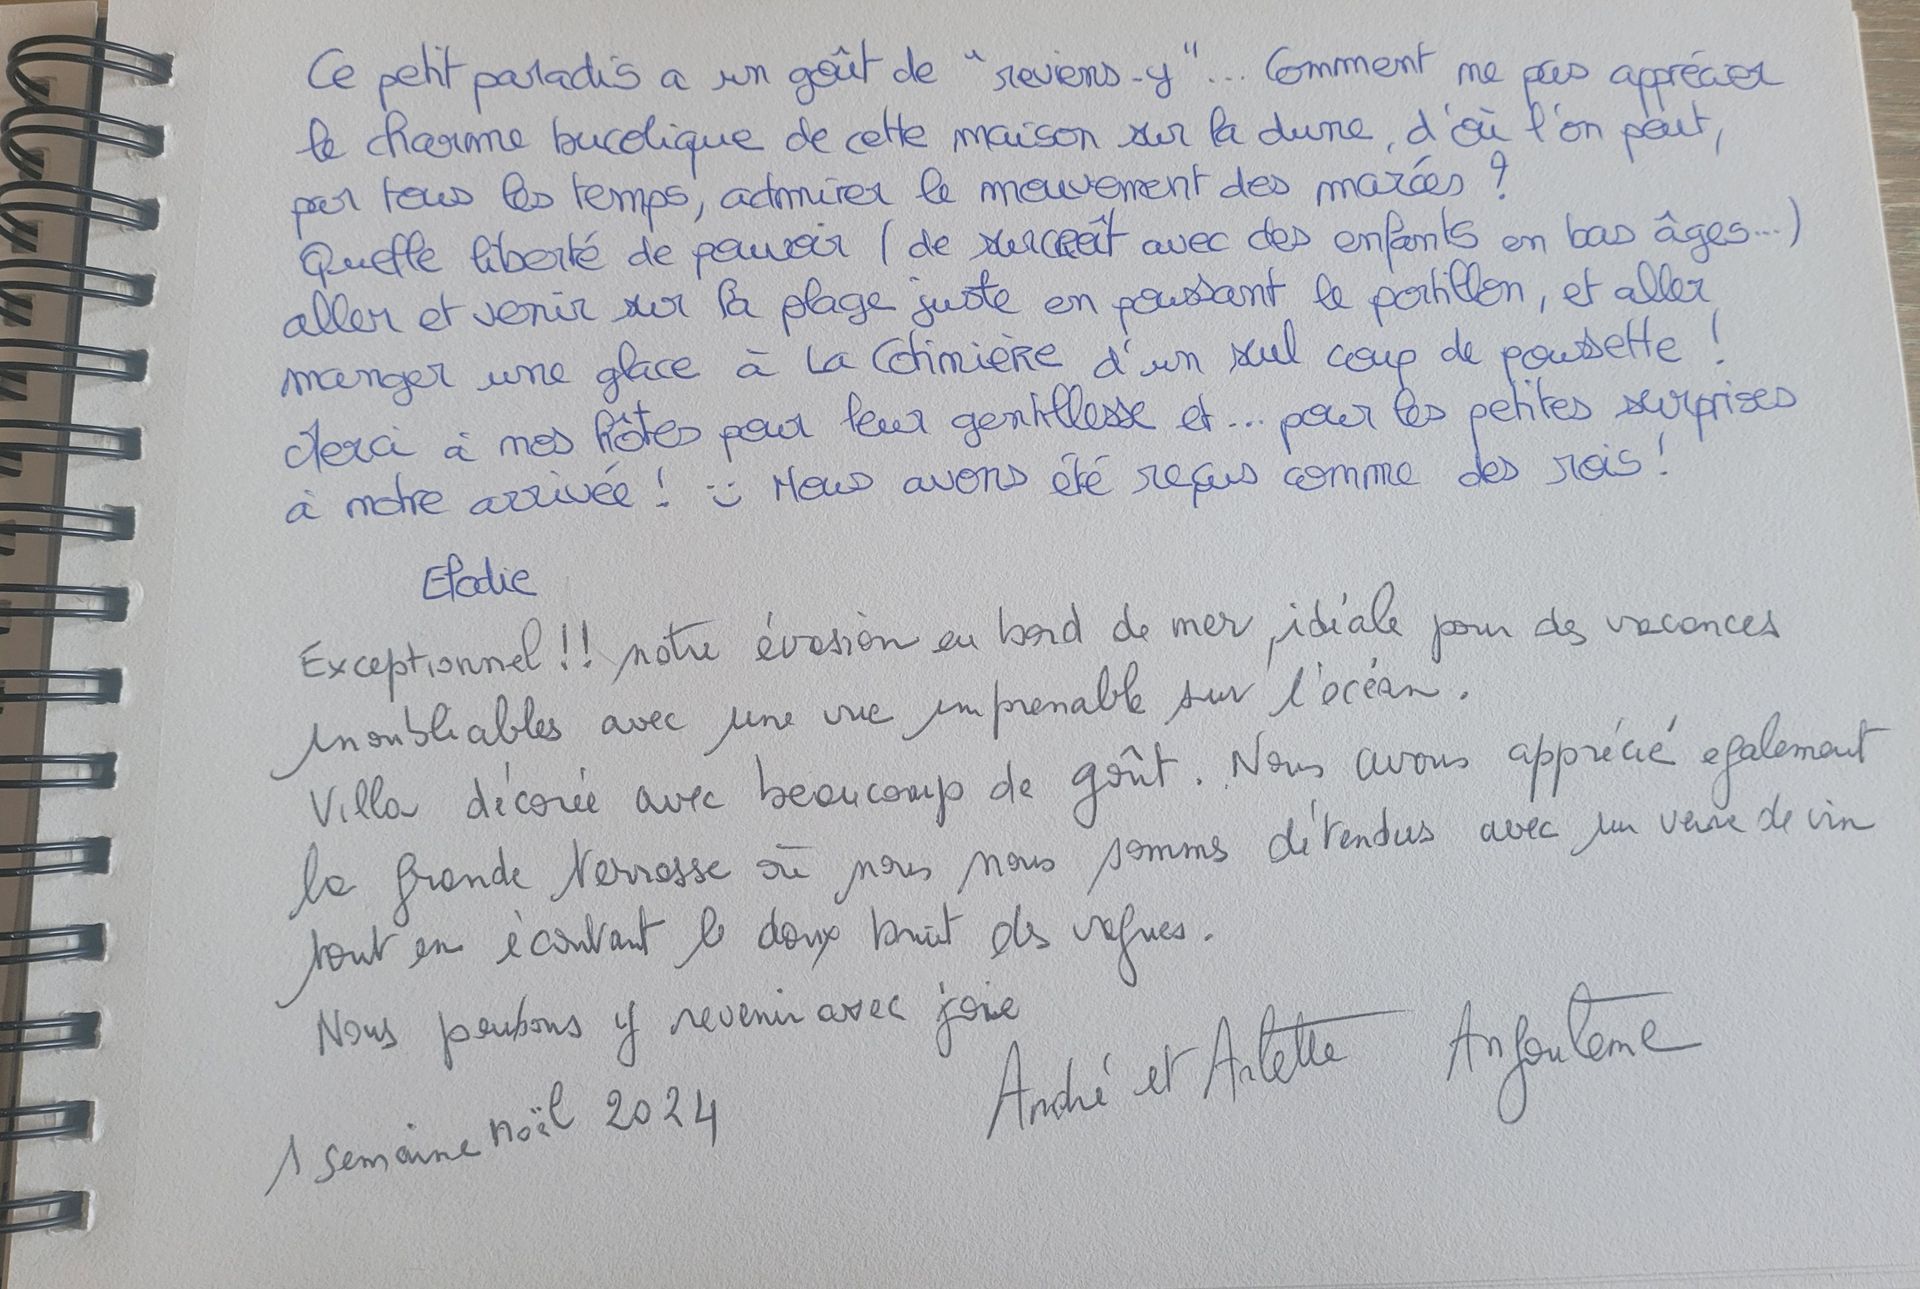 Ce petit paradis a un goût de "reviens-y"... Comment ne pas apprécier
le charme bucolique de cette maison sur la dune, d'où l'on peut,
par tous les temps, admirer le mouvement des marées ?
Quelle liberté de pouvoir (de surcroît avec des enfants en bas âges...)
aller et venir sur la plage juste en poussant le portillon, et aller
manger une glace à La Cotinière d'un seul coup de poussette !
Merci à nos hôtes pour leur gentillesse et... pour les petites surprises
à notre arrivée ! :) Nous avons été reçus comme des rois !
Elodie
Exceptionnel !! notre évasion en bord de mer, idéale pour des vacances
inoubliables avec une vue imprenable sur l'océan.
Villa décorée avec beaucoup de goût. Nous avons apprécié egalement
la grande terrasse où nous nous sommes détendus avec un verre de vin
tout en écoutant le doux bruit des vagues.
Nous y revenir avec joie
André et Arlette Angoulême
1 semaine noël 2024